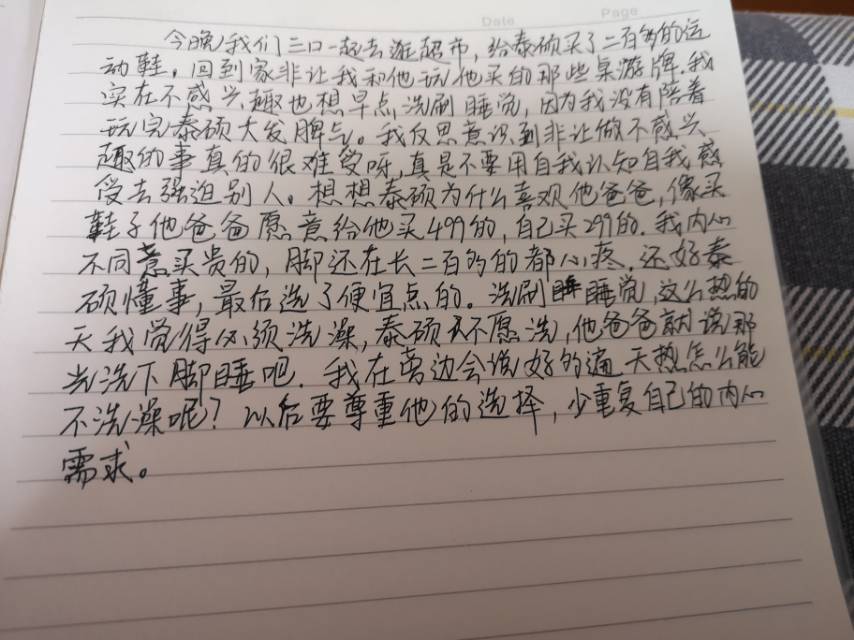 Date Page
今晚我们三口一起去逛超市，给泰硕买了二百多的运
动鞋，回到家非让我和他玩他买的那些桌游牌.我
实在不感兴趣也想早点洗刷睡觉，因为我没有陪着
玩完泰硕大发脾气。我反思意识到非让做不感兴
趣的事真的很难受呀，真是不要用自我认知自我感
受去强迫别人。想想泰硕为什么喜欢他爸爸，像买
鞋子他爸爸愿意给他买499的，自己买299的.我内心
不同意买贵的，脚还在长二百多的都心疼.还好泰
硕懂事，最后选了便宜点的。洗刷睡觉，这么热的
天我觉得必须洗澡，泰硕不愿洗，他爸爸就说那
当洗下脚睡吧.我在旁边会说好多遍天热怎么能
不洗澡呢？以后要尊重他的选择，少重复自己的内心
需求。